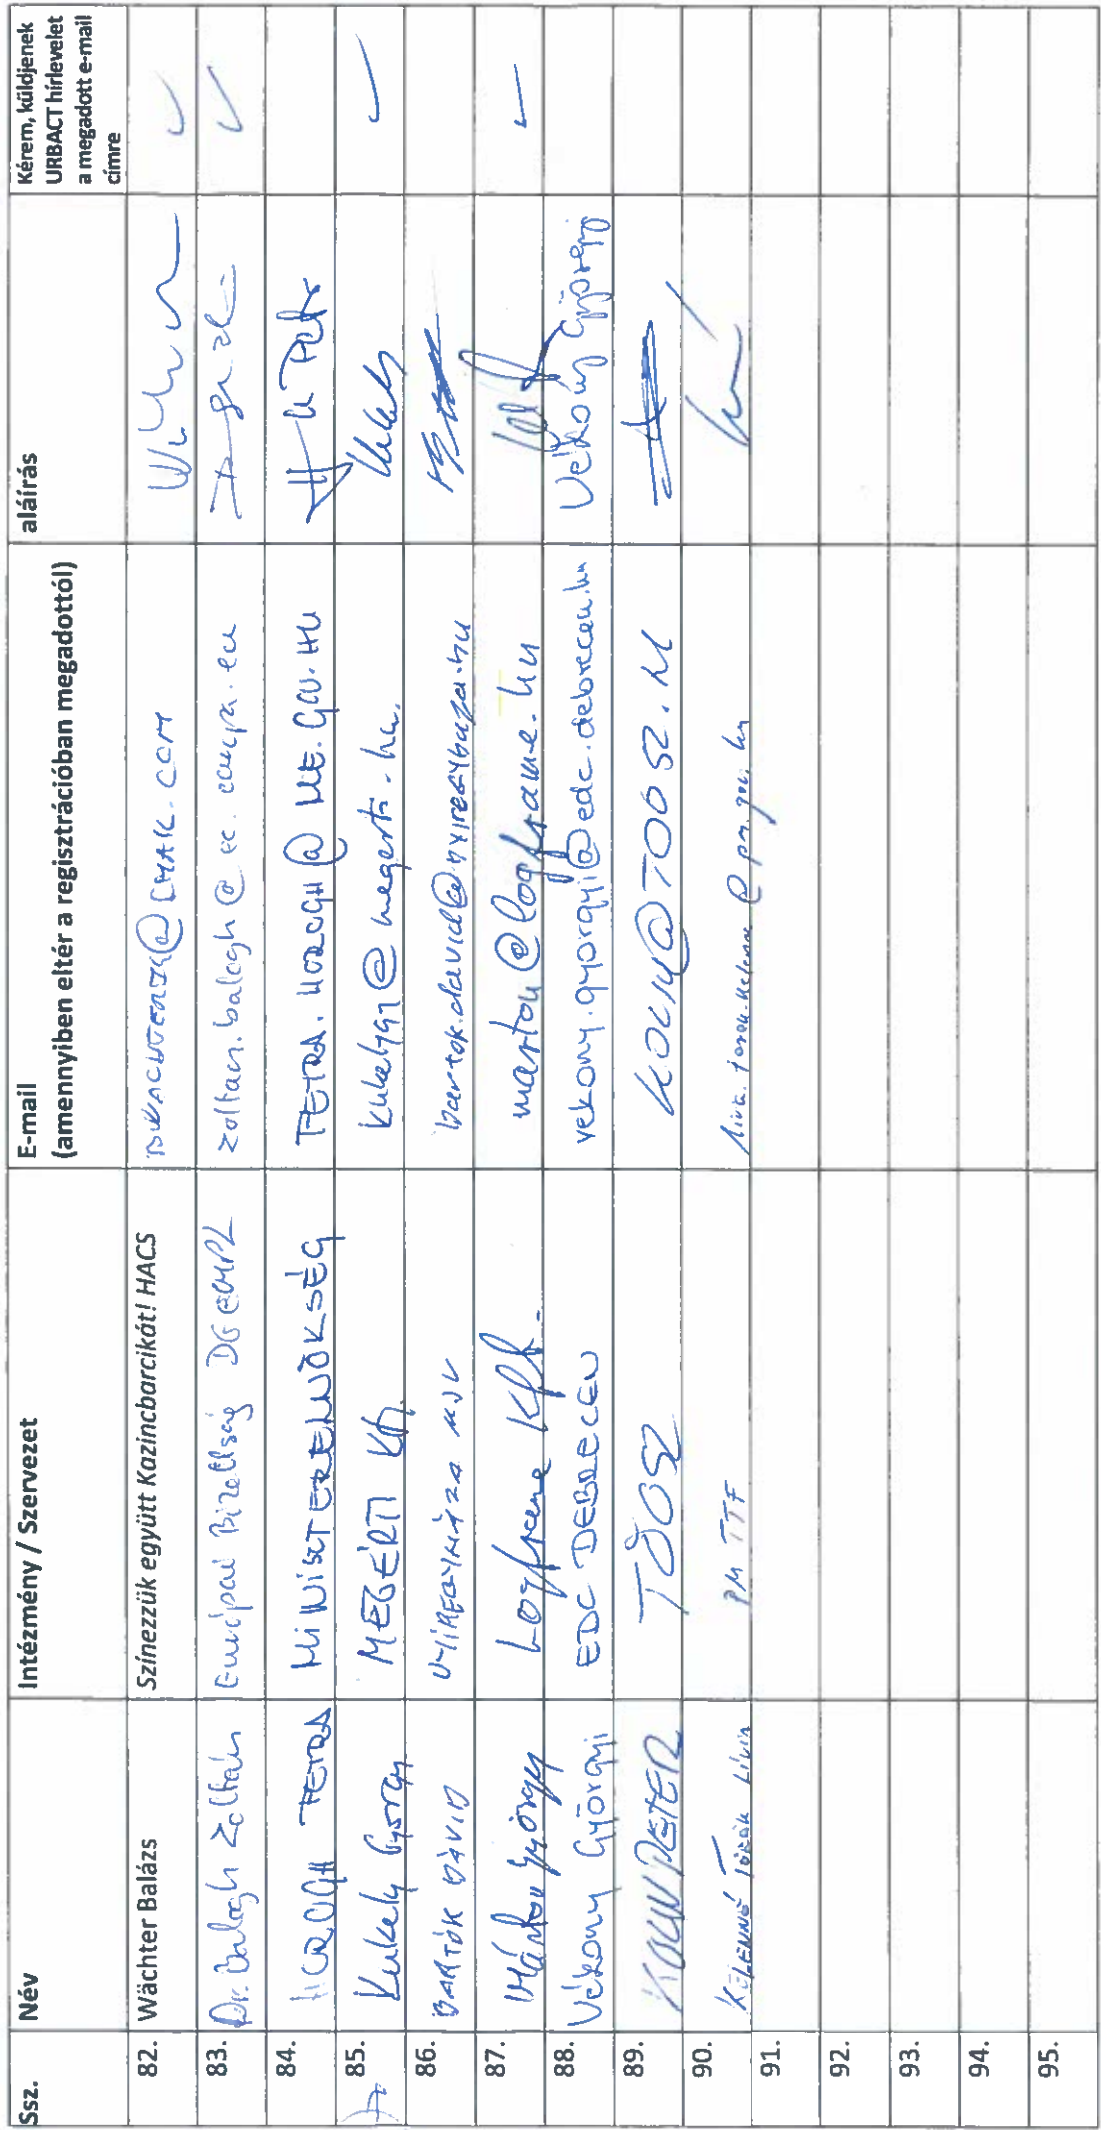 Ssz. Név Intézmény / Szervezet E-mail (amennyiben eltér a regisztrációban megadottól) aláírás Kérem, küldjenek URBACT hírlevelet a megadott e-mail címre
82. Wächter Balázs Színezzük együtt Kazincbarcikát! HACS
83. Dr. Balogh Zoltán Európai Bizottság DG EMPL zoltan.balogh@ec.europa.eu
84. PETRA MINISZTERELNÖKSÉG @ME.GOV.HU
85. Kukely György MEGÉRTI Kft. kukelygy@megerti.hu.
86. BARTÓK DÁVID NYÍREGYHÁZA MJV bartok.david@nyiregyhaza.hu
87. Márton György Logframe Kft. marton@logframe.hu
88. Vékony Györgyi EDC DEBRECEN vekony.gyorgyi@edc.debrecen.hu Vékony Györgyi
89. PÉTER TÖOSZ
90. KELENNÉ TÖRÖK Lívia PM TTF @pm.gov.hu
91.
92.
93.
94.
95.